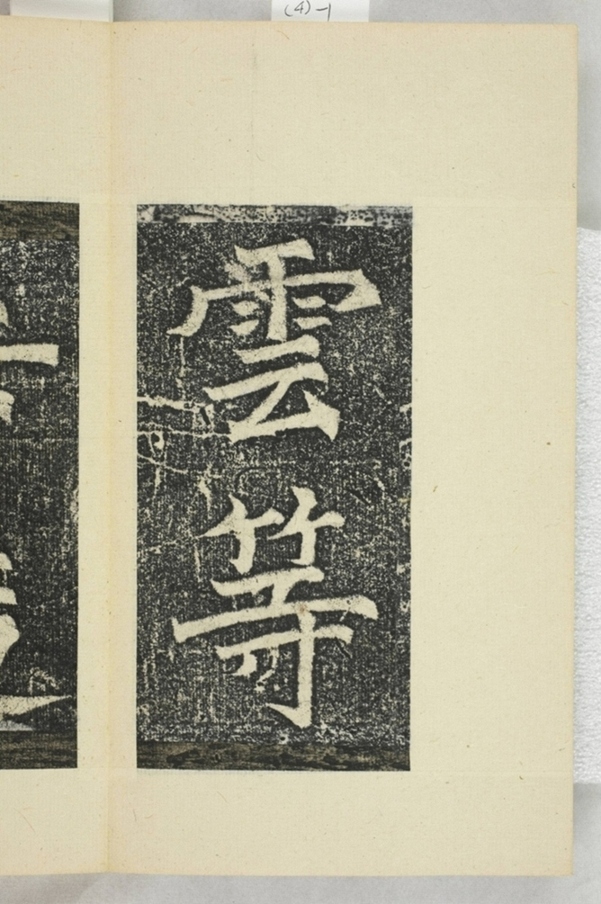 (4)-1
雲等